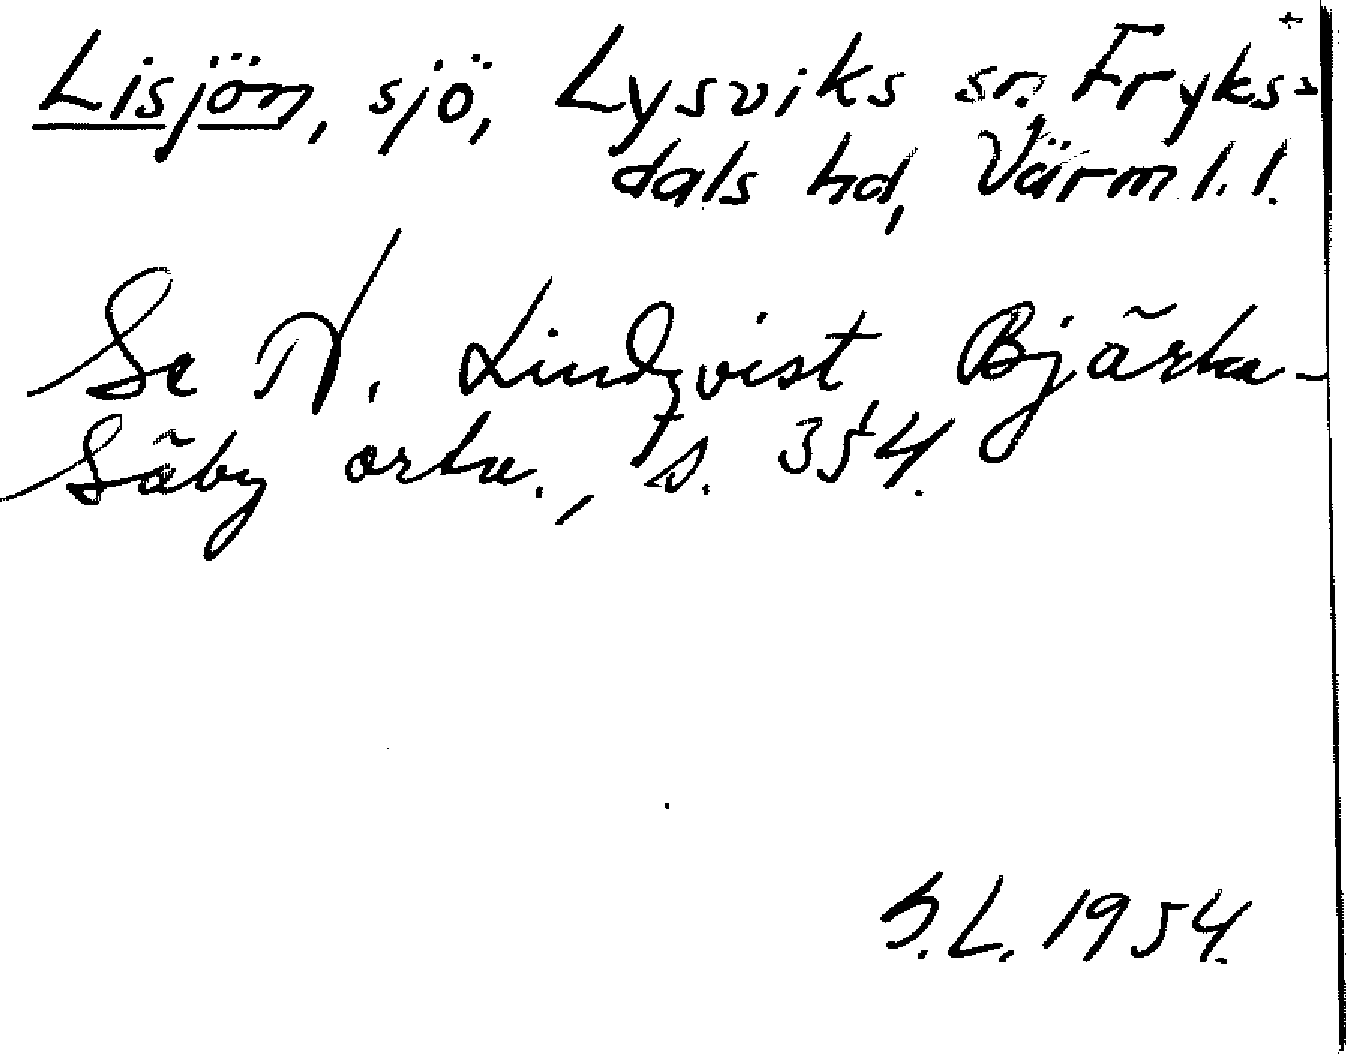 Lisjön, sjö, Lysviks sn. Fryks-
dals hd, Värml. l.
Se N. Lindqvist Bjärka-
Säby ortn., 1 s. 354.
S.L. 1954.